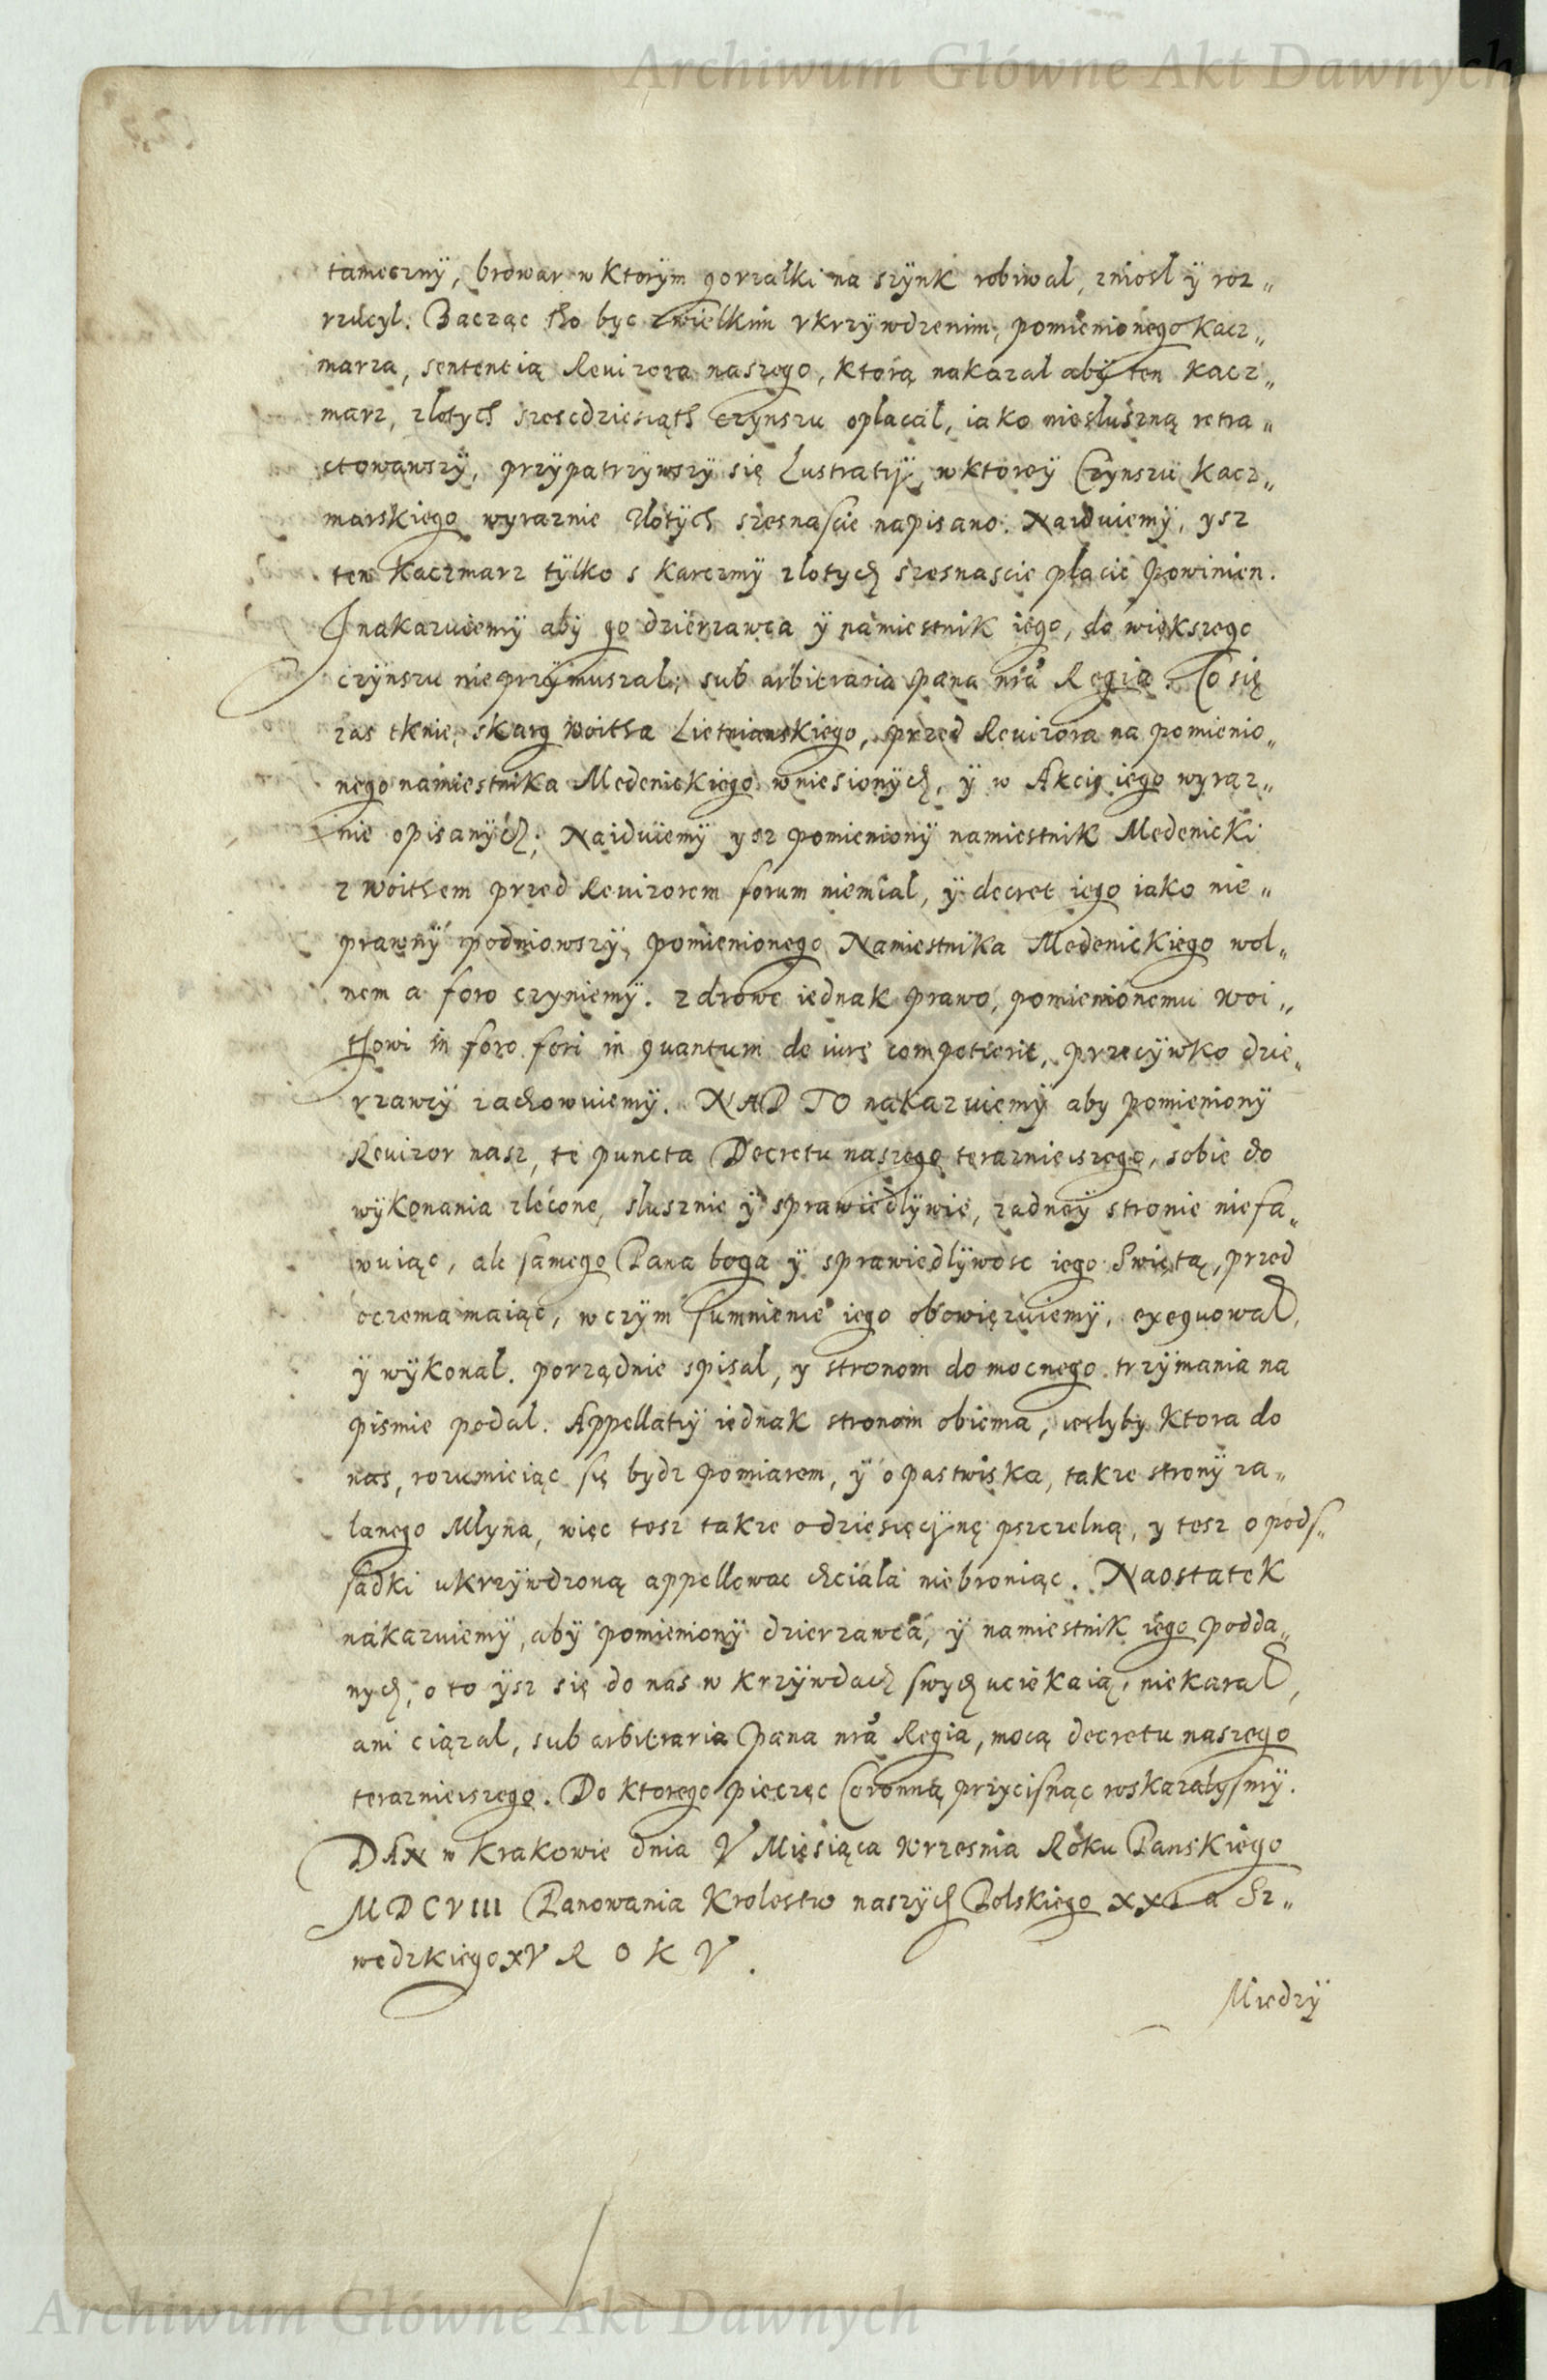 Archiwum Główne Akt Dawnych
tameczny, browar w ktorym gorzałki na szynk robiwał, zniosł ÿ roz„
rzucył. Bacząc tho byc z wielkim vkrzywdzenim, pomienionego kacz„
marza, sentencią Reuizora naszego, ktorą nakazał abÿ ten kacz„
marz, zlotych szescdziesiąth czynszu opłacał, iako niesłuszną retra„
ctowawszÿ, przÿpatrzÿwszÿ się Lustratiÿ, w ktoreÿ Czynszu kacz„
marskiego wyraznie zlotÿch szesnascie napisano. Naiduiemÿ, ysz
ten kaczmarz tÿlko s karczmÿ zlotych szesnascie płacic powinien.
I nakazuiemÿ abÿ go dzierzawca ÿ namiestnik iego, do większego
czÿnszu nieprzÿmuszał, sub arbitraria pæna nrã Regia. Co się
zas tknie, skarg woitha Lietnianskiego, przed Reuizora na pomienio„
nego namiestnika Medenickiego wniesionÿch, ÿ w Akciÿ iego wyráz„
nie opisanÿch; Naiduiemÿ ysz pomienionÿ namiestnik Medenicki
z woithem przed Reuizorem forum niemiał, ÿ decret iego iako nie„
prawnÿ podniowszÿ, pomienionego Namiestnika Medenickiego wol„
nem a foro czyniemÿ. zdrowe iednak prawo, pomienionemu woi„
thowi in foro fori in quantum de iure competierit, przecÿwko dzie„
rzawcÿ zachowuiemÿ. NAD TO nakazuiemÿ aby pomienionÿ
Reuizor nasz, te puncta Decretu naszego terazniejszego, sobie do
wÿkonania zlecone, słusznie ÿ sprawiedlÿwie, zadneÿ stronie niefa„
wuiąc, ale samego Pana boga ÿ sprawiedlÿwosc iego Swiętą, przed
oczema maiąc, w czÿm sumnienie iego obowięzuiemÿ, exequował,
ÿ wÿkonał. porządnie spisał, y stronom do mocnego trzÿmania na
pismie podał. Appellatiÿ iednak stronom obiema, ieslyby ktora do
nas, rozumieiąc się bydz pomiarem, ÿ o pastwiska, takze stronÿ za„
lanego Mlyna, więc tesz takze o dziesięcÿnę pszczelną, y tesz o pods„
sadki ukrzÿwdzoną appellowac chciała niebroniąc. Naostatek
nakazuiemÿ, abÿ pomienionÿ dzierzawca, ÿ namiestnik iego podda„
nych, o to ÿsz się do nas w krzÿwdach swych uciekaią, niekarał,
ani ciązał, sub arbitraria Pæna nrã Regia, mocą decretu naszego
terazniejszego. Do ktorego pieczęc Coronną przycisnąc roskazalysmÿ.
DAN w Krakowie dnia V Miesiąca Wrzesnia Roku Panskiego
MDCVIII Panowania Krolestw naszÿch Polskiego XXI a Sz„
wedzkiego XV ROKV.
Miedzÿ
Archiwum Główne Akt Dawnych